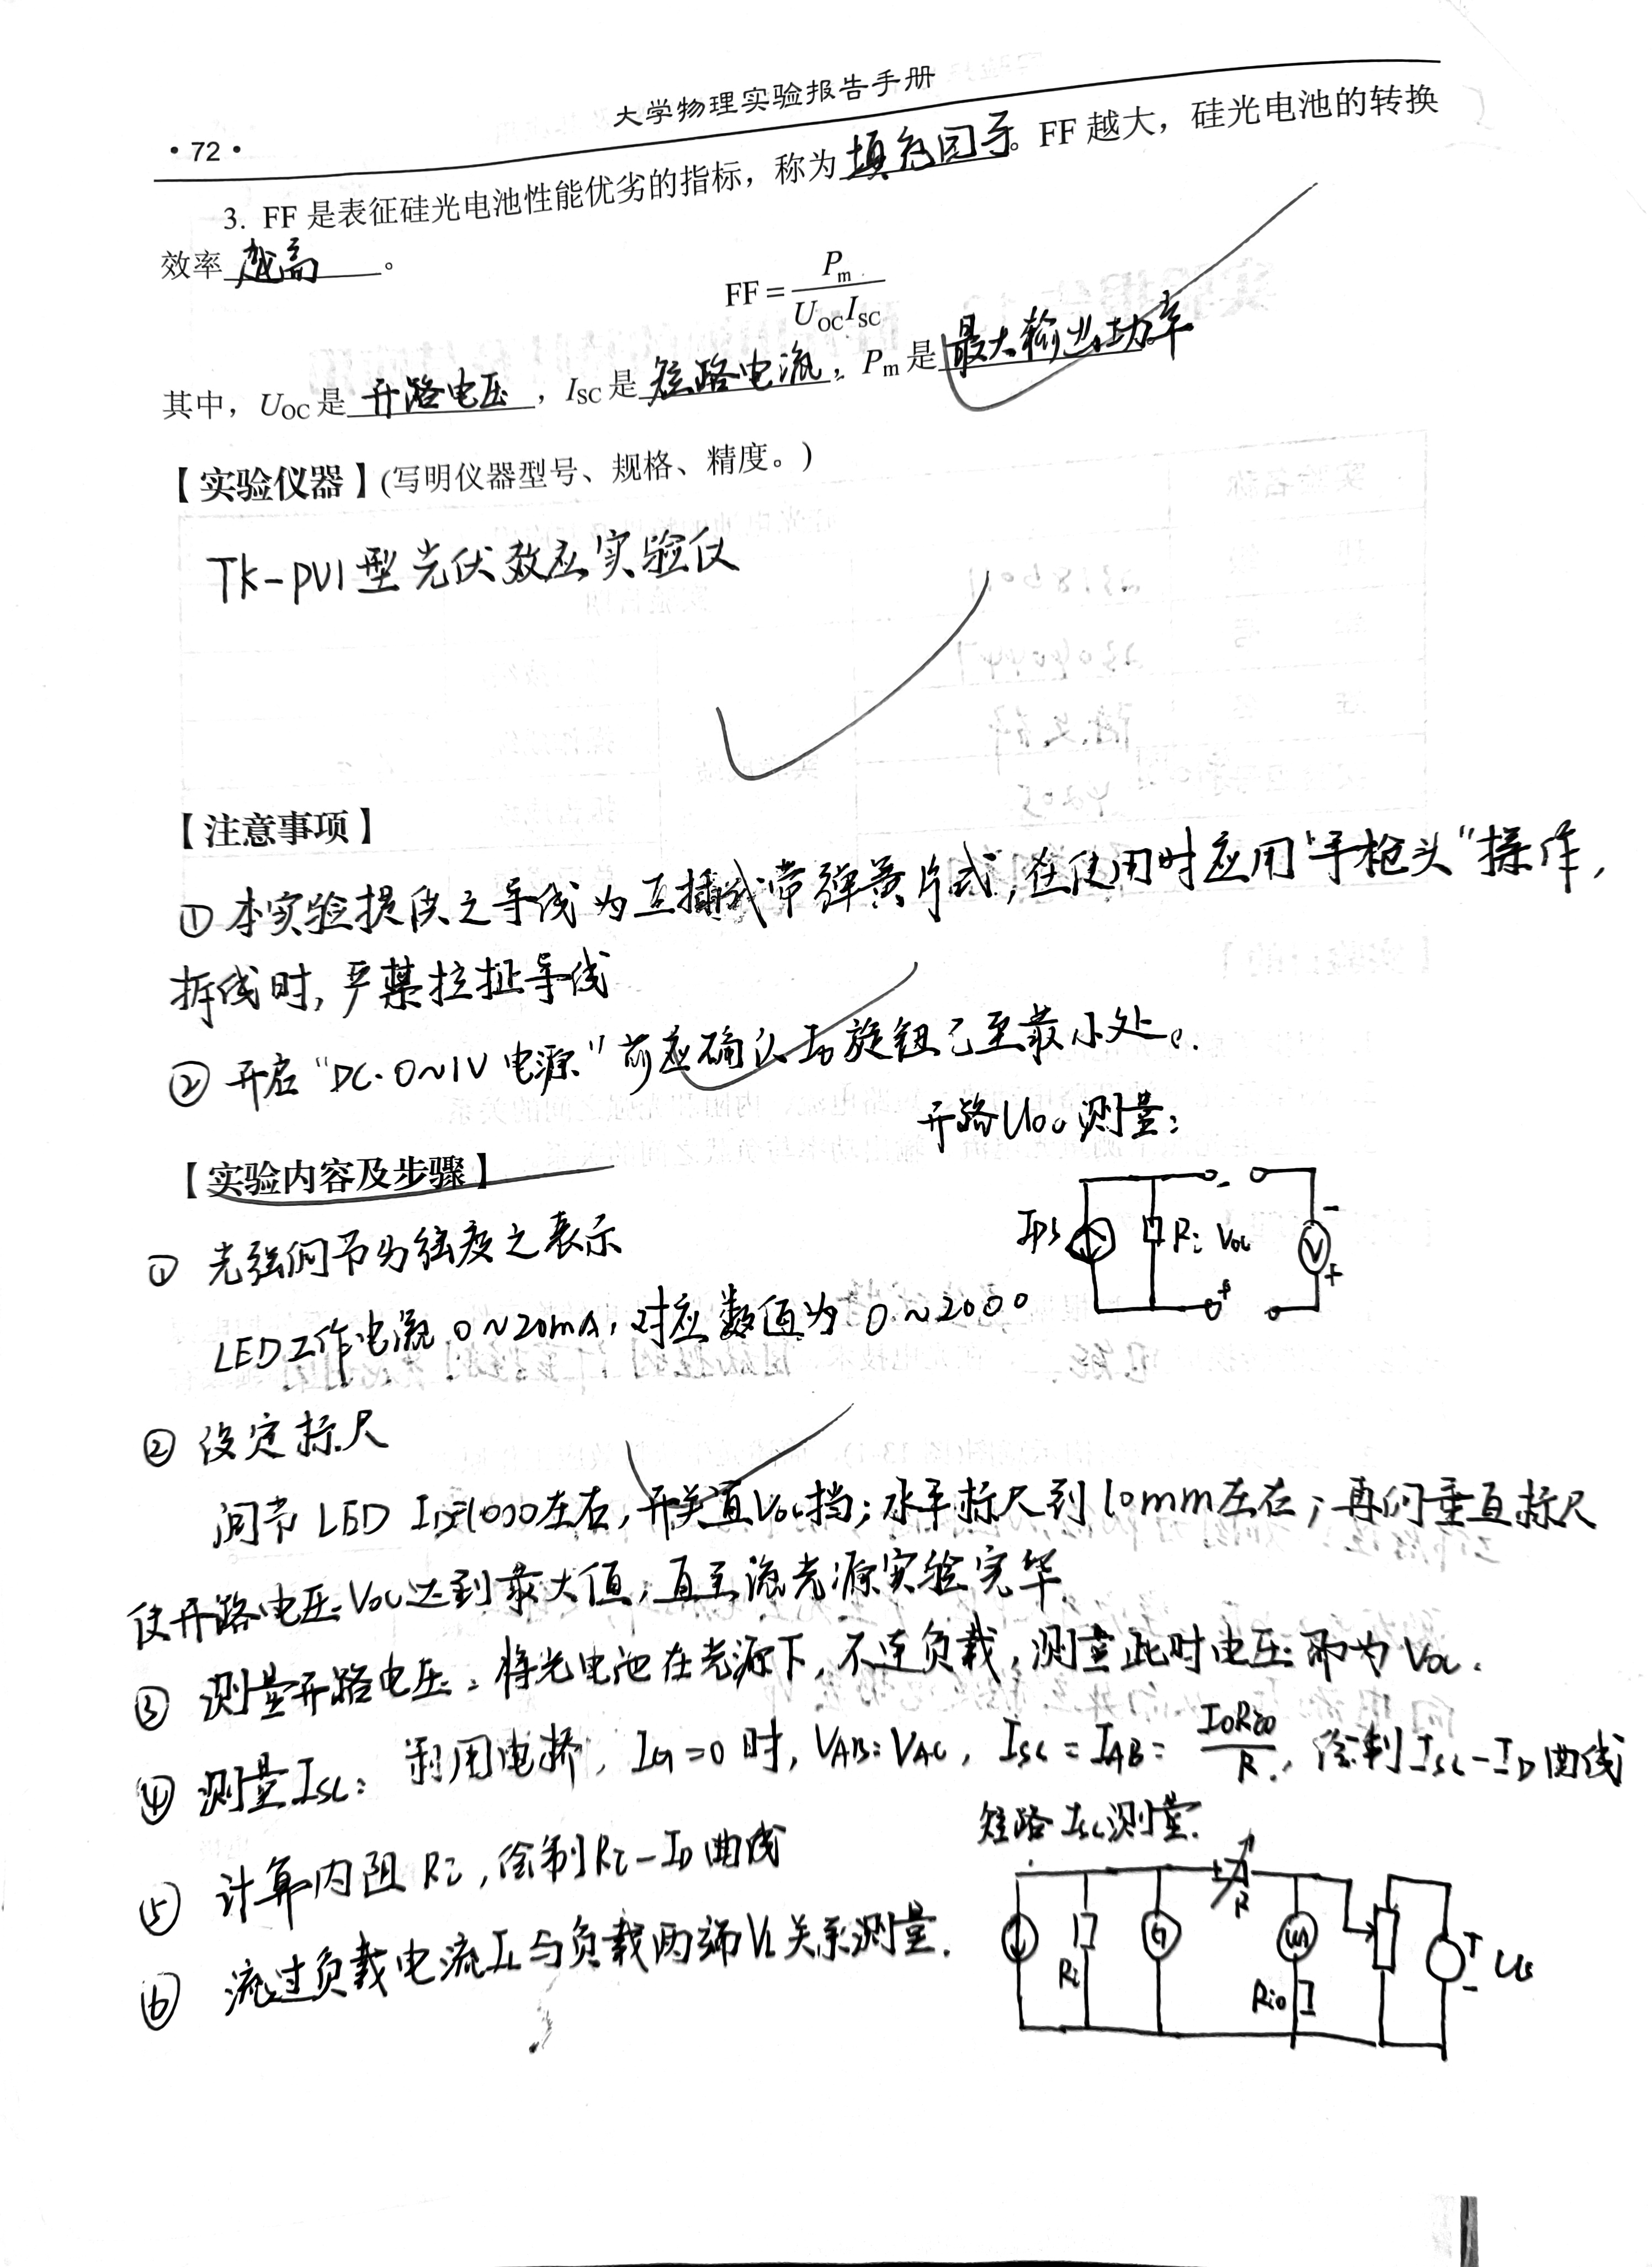 大学物理实验报告手册
·72·
3. FF 是表征硅光电池性能优劣的指标，称为填充因子。FF 越大，硅光电池的转换
效率越高。
FF = P_m / (U_OC I_SC)
其中，U_OC 是开路电压，I_SC 是短路电流，P_m 是最大输出功率
【实验仪器】(写明仪器型号、规格、精度。)
TK-PV1型光伏效应实验仪
【注意事项】
① 本实验提供之导线为互插式带弹簧片式，在使用时应用"手枪头"操作，
拆线时，严禁拉扯导线
② 开启"DC·0~1V电源"前应确认 I0 旋钮已至最小处。
开路Uoc测量：
【实验内容及步骤】
IPS Ri Voc V - + - +
① 光强调节为强度之表示
LED工作电流 0~20mA，对应数值为 0~2000
② 设定标尺
调节 LED ID=1000左右，开关置Voc挡；水平标尺到10mm左右；再调垂直标尺
使开路电压Voc达到最大值，直至 光源实验完毕
③ 测量开路电压：将光电池在光源下，不连负载，测量此时电压即为Voc.
④ 测量Isc：利用电桥，IG=0时，VAB=VAC，Isc=IAB=I0Ri0/R，绘制Isc-ID曲线
短路Isc测量.
⑤ 计算内阻Ri，绘制Ri-ID曲线
⑥ 流过负载电流IL与负载两端VL关系测量.
Ri G R Ri0 + - Us